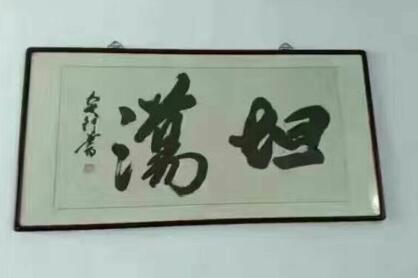 坦蕩
書